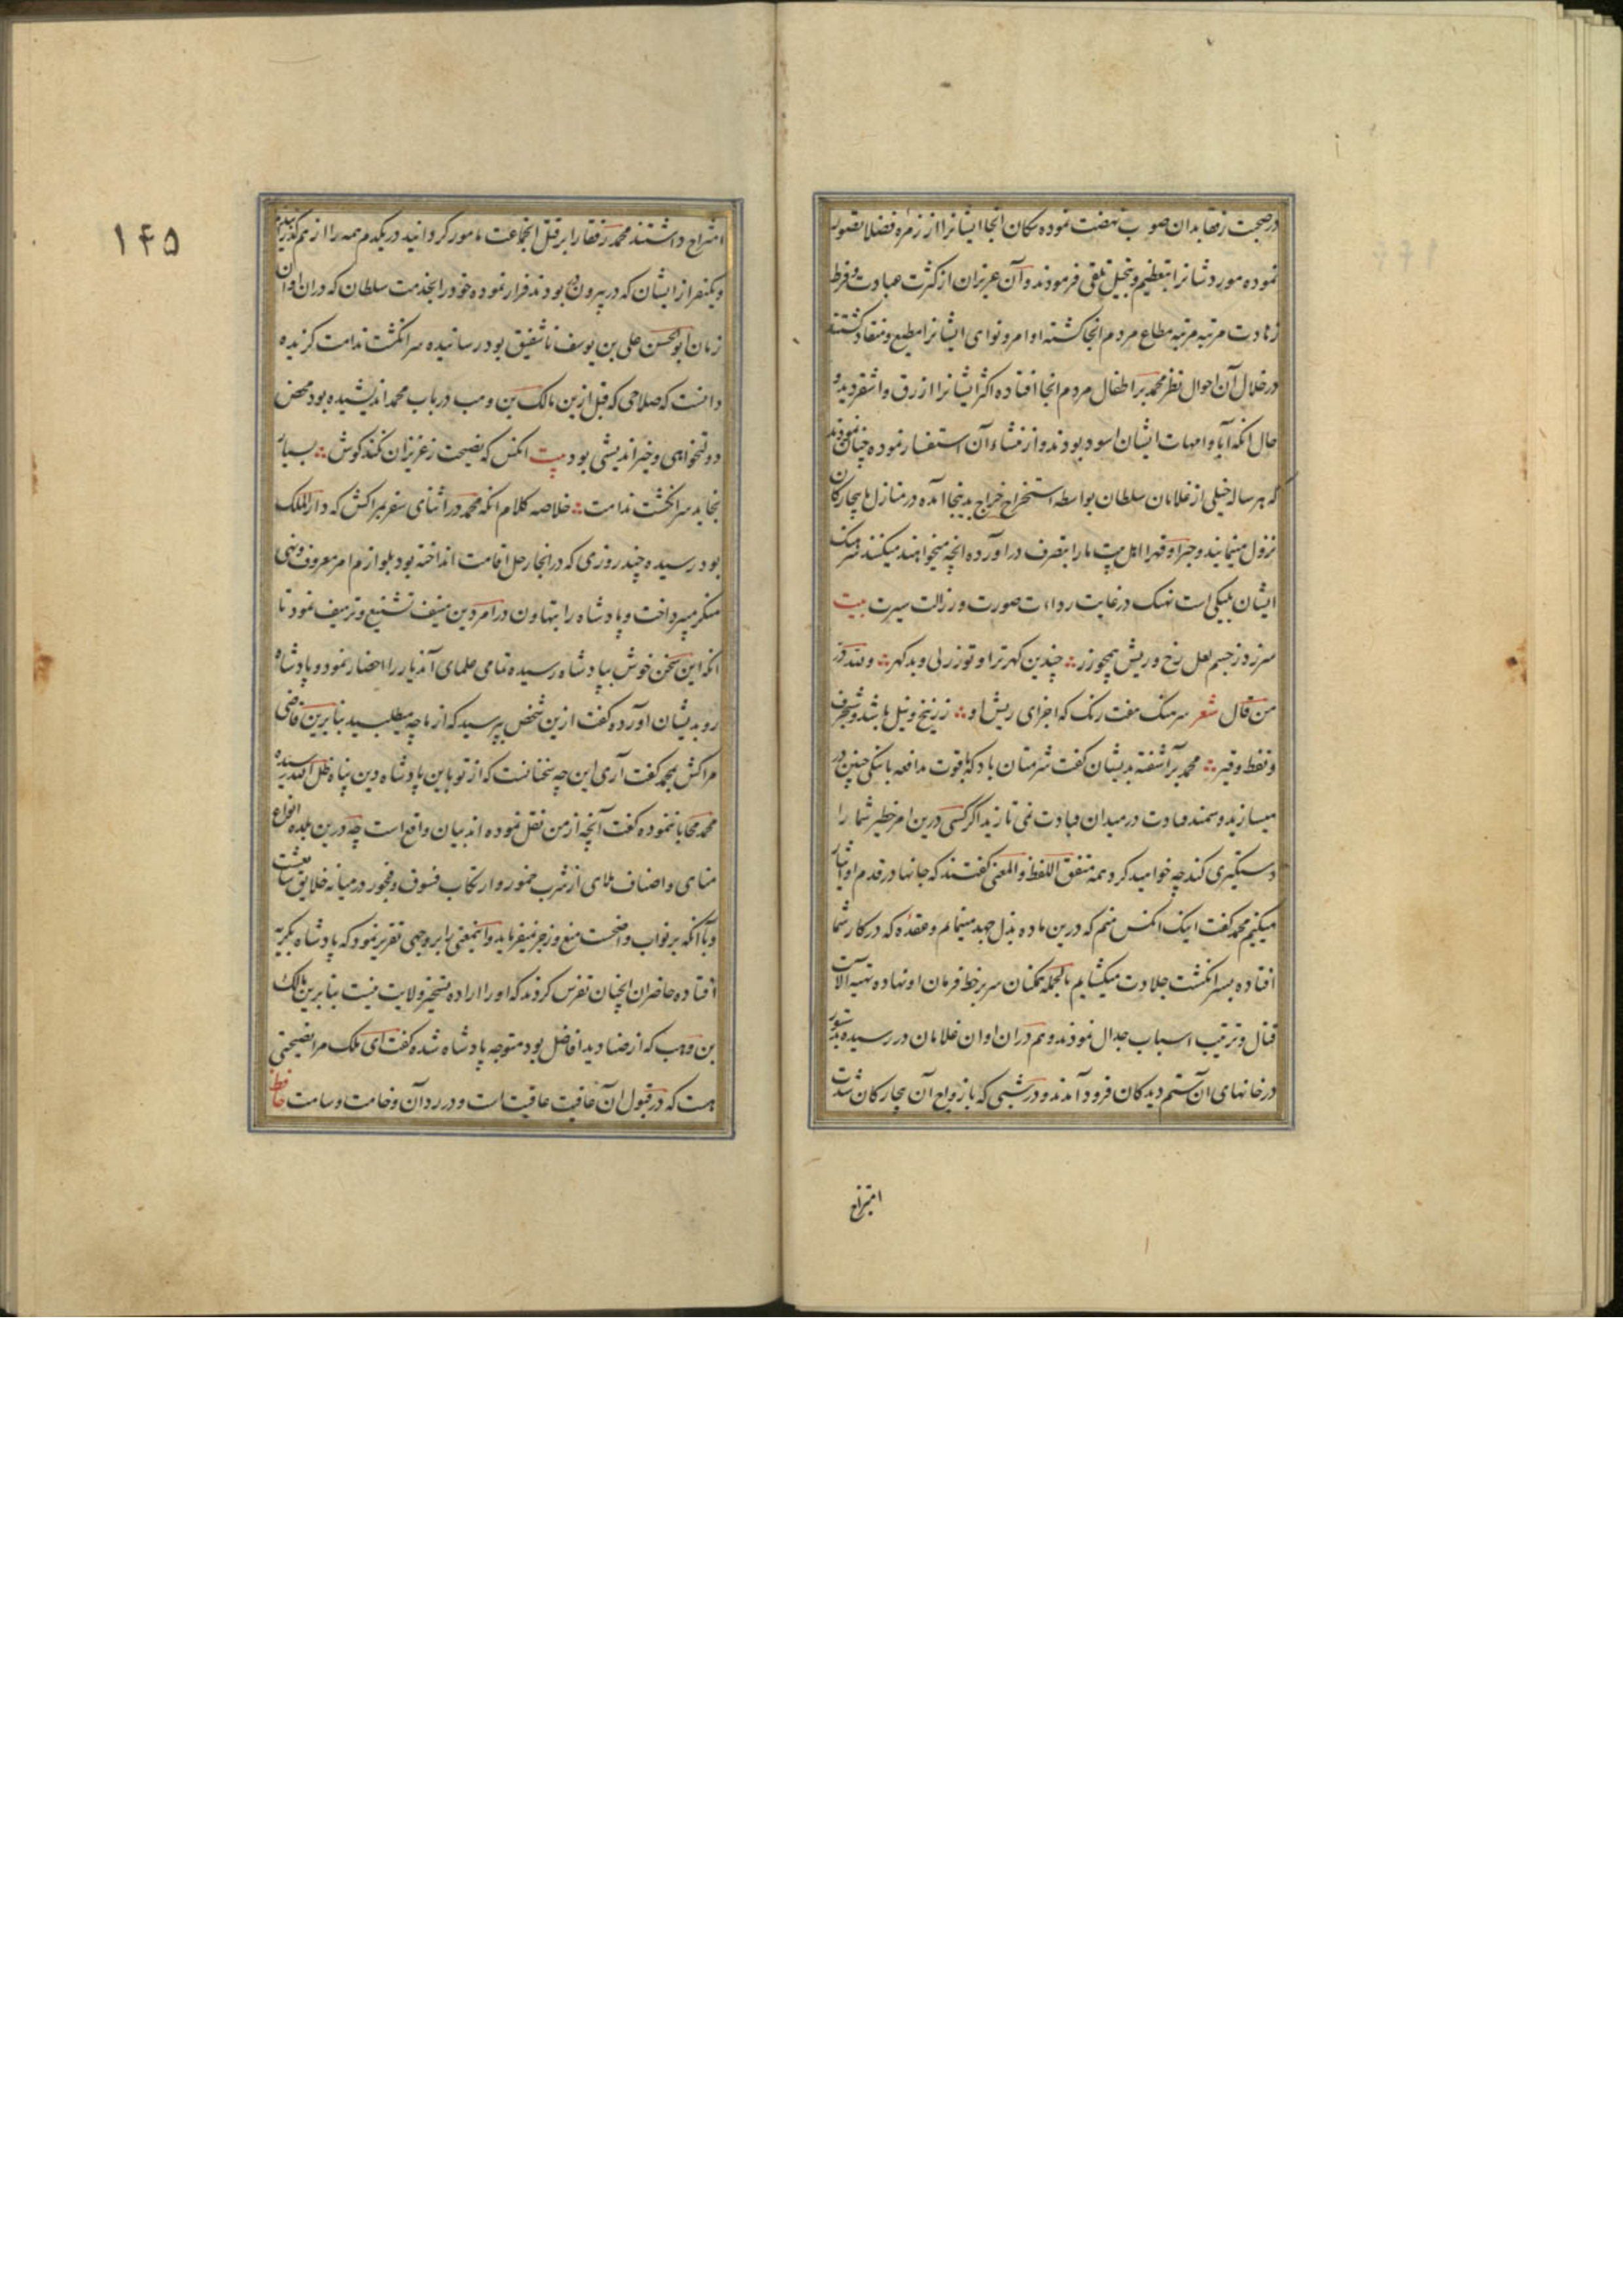 در صحبت رفقا بدان صوب نهضت نموده سکان انجا ایشانرا از زمره فضلا تصور
نموده مورد شانرا بتعظیم و تبجیل تلقی فرمودند و آن عزیزان از کثرت عبادت و فرط
زهادت مرتبه مرتبه مطاع مردم انجا کشته اوامر و نواهی ایشانرا مطیع و منقاد کشتند
در خلال آن احوال نظر محمد بر اطفال مردم انجا افتاده اکثر ایشانرا ازرق و اشقر دید و
حال انکه آبا و امهات ایشان اسود بودند و از منشاء آن استفسار نموده چنان نمودند
که هر ساله خیلی از غلامان سلطان بواسطه استخراج خراج بدینجا آمده در منازل ما بیچارکان
نزول مینمایند و جبرا و قهرا اهل بیت ما را بتصرف در اورده انچه میخواهند میکنند سرهنک
ایشان یلبکی است نهنک در غایت رداءت صورت و رزالت سیرت بیت
سرزد ز جسم لعل رخ و ریش همچو زر چندین کهر ترا و تو زرلی و بد کهر و لله در
من قال شعر سرهنک هفت رنک که اجزای ریش او زرنیخ و نیل باشد و شنجرف
و نفط و قیر محمد برآشفته بدیشان کفت شرمتان باد که با قوت مدافعه با ننکی چنین در
میسازید و سمند قیادت در میدان قیادت نمی تازید اگر کسی درین امر خطیر شما را
دستکیری کند چه خواهید کرد همه متفق اللفظ و المعنی کفتند که جانها در قدم او ایثار
میکنیم محمد کفت اینک انکس منم که درین ماده بذل جهد مینمایم و عقده که در کار شما
افتاده بسر انکشت جلادت میکشایم بالجمله همکنان سر بر خط فرمان او نهاده تهیه آلات
قتال و ترتیب اسباب جدال نمودند و هم در ان اوان غلامان در رسیده بدستور
در خانهای ان ستم دیدکان فرود آمدند و در شبی که بازواج آن بیچارکان شدت
امتزاج
۱۴۵
امتزاج داشتند محمد رفقا را بر قتل انجماعت مامور کردانید در یکدم همه را از هم کذرانیدند
و یکنفر از ایشان که در بیرون ده بودند فرار نموده خود را بخدمت سلطان که در ان اوان
زمان ابوالحسن علی بن یوسف تاشفین بود رسانیده سر انکشت ندامت کزیده
دانست که صلاحی که قبل ازین مالک بن وهب در باب محمد اندیشیده بود محض
دولتخواهی و خیراندیشی بود بیت انکس که نصیحت ز عزیزان نکند کوش بسیار
بخاید سر انکشت ندامت خلاصه کلام انکه محمد در اثنای سفر بمراکش که دار الملک
بود رسیده چند روزی که در انجا رحل اقامت انداخته بود بلوازم امر معروف و نهی
منکر میپرداخت و پادشاه را بتهاون در امر دین منیف تشنیع و تزییف نمود تا
انکه این سخن خوش بپادشاه رسیده تمامی علمای آندیار را احضار نمود و پادشاه
رو بدیشان اورده کفت ازین شخص بپرسید که از ما چه میطلبید بنابرین قاضی
مراکش بمحمد کفت آری این چه سخنانست که از تو باین پادشاه دین پناه ظل الله رسیده
محمد محابا ننموده کفت آنچه از من نقل نموده اند بیان واقع است چه درین بلده انواع
مناهی و اصناف ملاهی از شرب خمور و ارتکاب فسوق و فجور در میانه خلایق
و با انکه بر نواب واضحست منع و زجر نمیفرماید و اینمعنی را بر وجهی تقریر نمود که پادشاه بکریه
افتاده حاضران انچنان تفرس کردند که او را اراده تسخیر ولایت هست بنابرین مالک
بن وهب که از صنادید افاضل بود متوجه پادشاه شده کفت ای ملک مرا نصیحتی
هست که در قبول ان عافیت عاقبت است و در رد آن وخامت و سامت حافظ